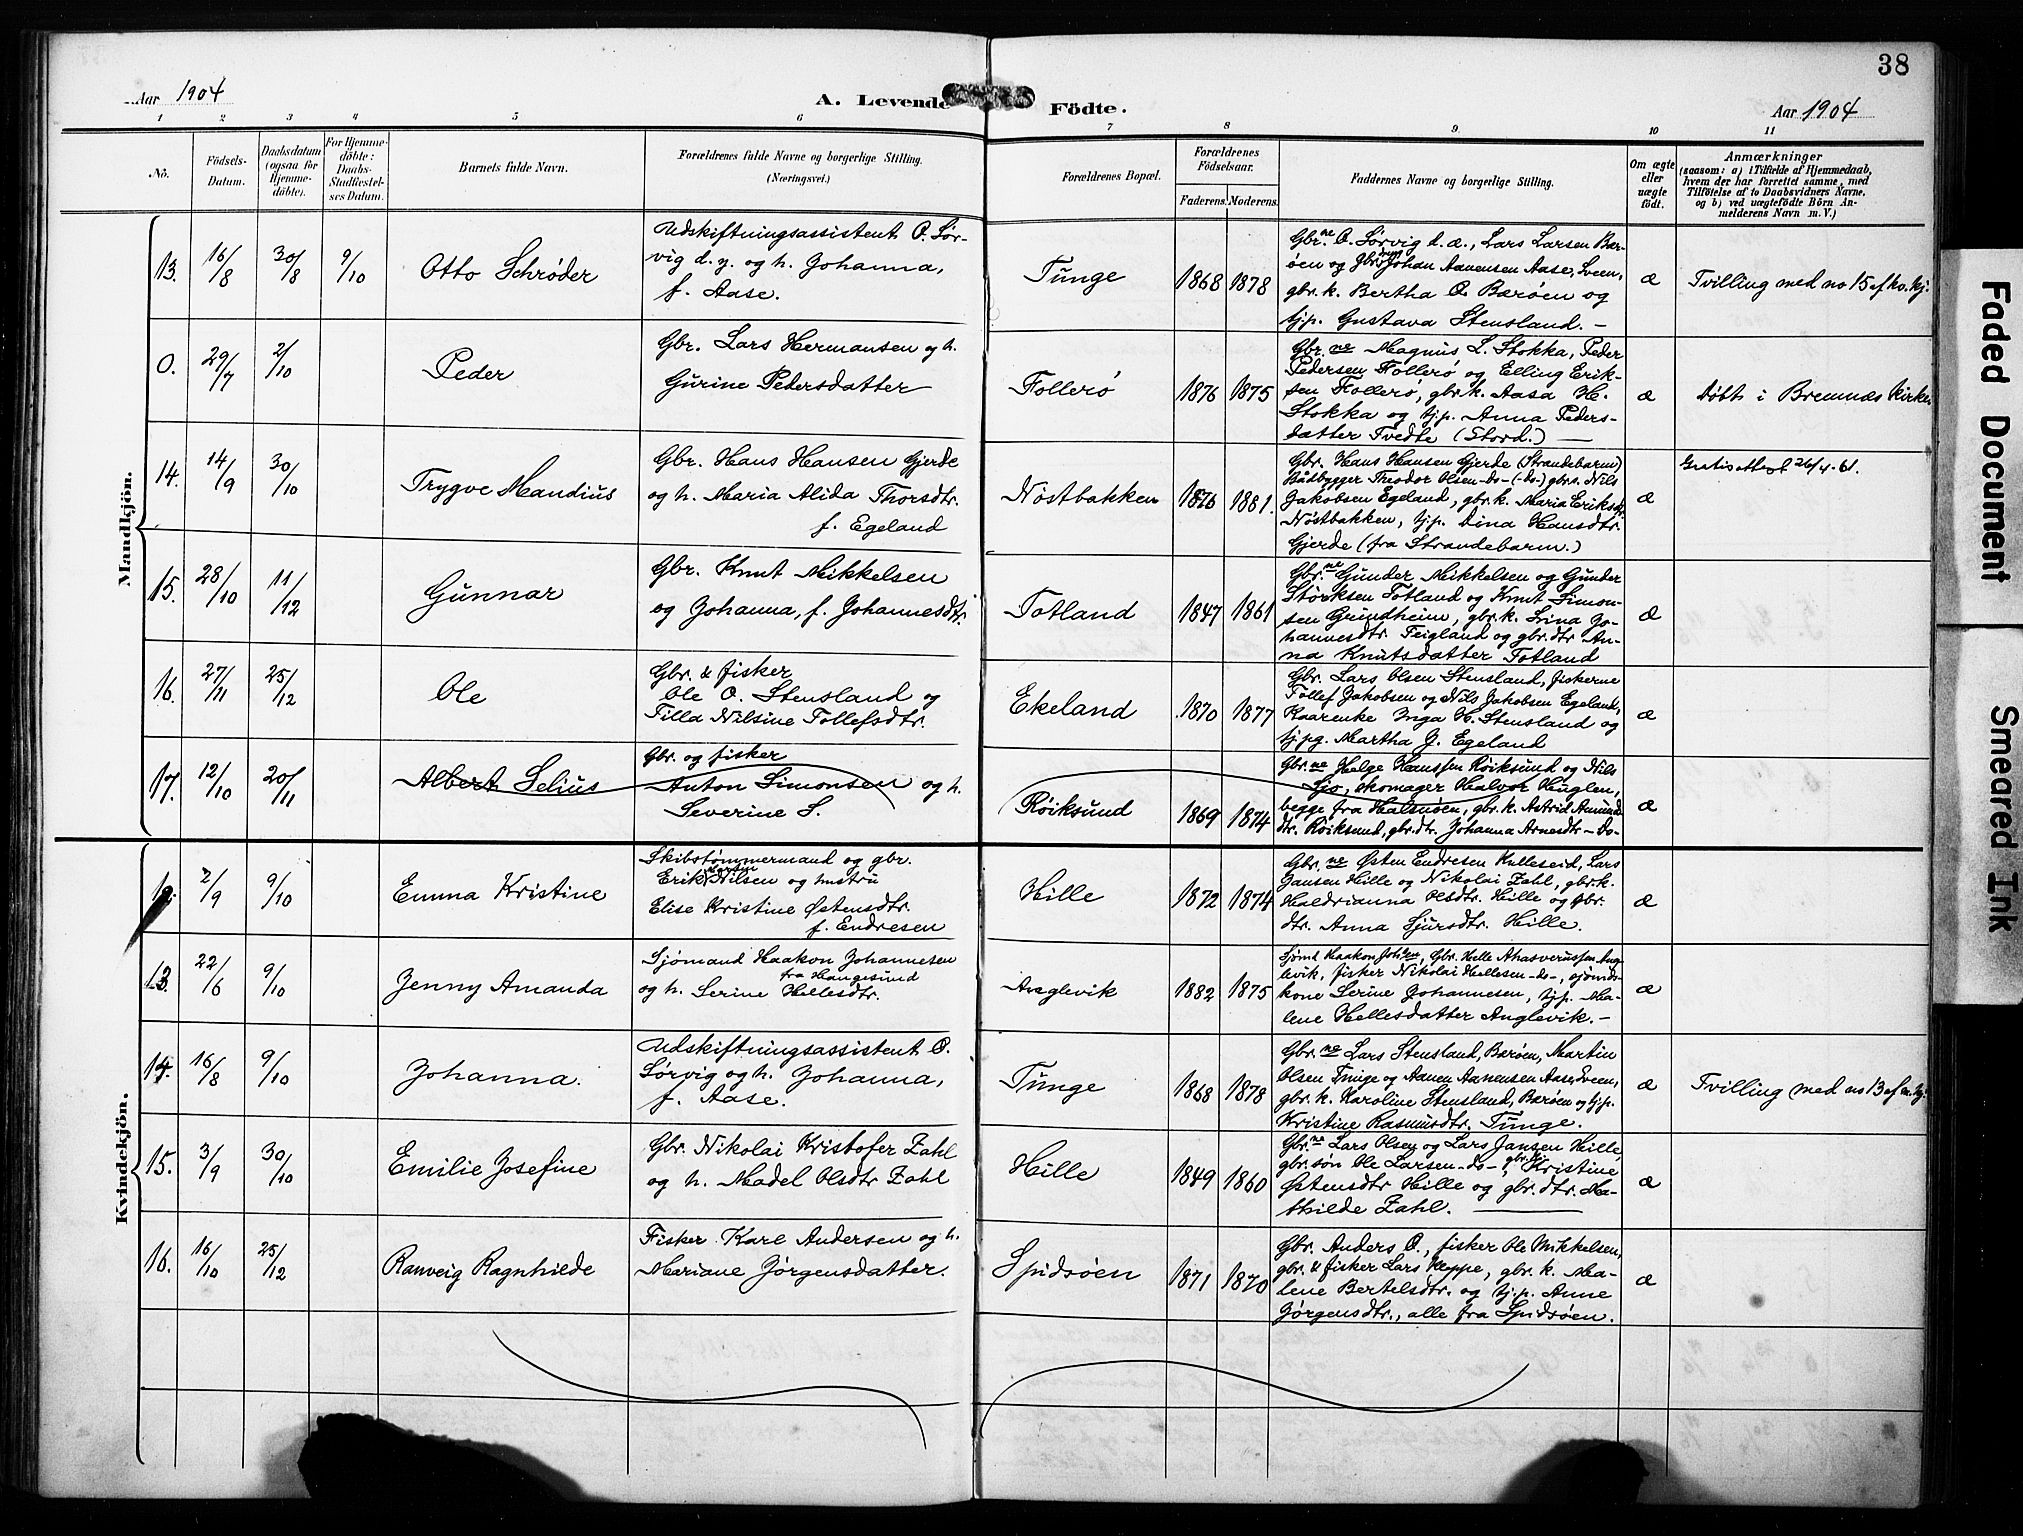 38
Aar 1904
A. Levende Födte.
Aar 1904
1 2 3 4 5 6 7 8 9 10 11
No.
Födsels-
Datum.
Daabsdatum
(ogsaa för
Hjemme-
döbte).
For Hjemme-
döbte:
Daabs-
Stadfæstel-
ses Datum.
Barnets fulde Navn.
Forældrenes fulde Navne og borgerlige Stilling.
(Næringsvei.)
Forældrenes Bopæl.
Forældrenes
Födselsaar.
Faderens. Moderens.
Faddernes Navne og borgerlige Stilling.
Om ægte
eller
uægte
födt.
Anmærkninger
(saasom: a) i Tilfælde af Hjemmedaab,
hvem der har forrettet samme, med
Tilföielse af to Daabsvidners Navne,
og b) ved uægtefödte Börn An-
melderens Navn m. V.)
Mandkjön.
13. 16/8 30/8 9/10 Otto Schrøder
Udskiftningsassistent O. Sør-
vig d. y. og h. Johanna,
f. Aase.
Tunge 1868 1878
Gbr.ne O. Sørvig d. æ., Lars Larsen Bær-
øen og Gbrsøn Johan Aanensen Aase, Sveen,
gbr. k. Bertha O. Bærøen og
tj.p. Gustava Stensland. –
æ
Tvilling med no 15 af kv. kj.
0. 29/7 2/10 Peder
Gbr. Lars Hermansen og h.
Gurine Pedersdatter
Follerø 1876 1875
Gbr.ne Magnus L. Stokka, Peder
Pedersen Follerø og Elling Erik-
sen Follerø, gbr. k. Aasa H.
Stokka og tj.p. Anna Peders-
datter Tvedte (Stord.) —
æ
Døbt i Bremnæs Kirke
14. 14/9 30/10 Trygve Mandius
Gbr. Hans Hansen Gjerde
og h. Maria Alida Thorsdtr.
f. Egeland
Nøstbakken 1876 1881.
Gbr. Hans Hansen Gjerde (Strandebarm)
Baadbygger Theodor Olsen -do- (-do-) gbr.s. Nils
Jakobsen Egeland, gbr. k. Maria Eriksdtr.
Nøstbakken, tj.p. Dina Hansdtr.
Gjerde (fra Strandebarm.)
æ
Gratis attest 26/4-61.
15. 28/10 11/12 Gunnar
Gbr. Knut Mikkelsen
og Johanna, f. Johannesdtr.
Totland 1847 1861
Gbr.ne Gunder Mikkelsen og Gunder
Størksen Totland og Knut Simon-
sen Grindheim, gbr. k. Lrina Jo-
hannesdtr. Teigland og gbr. dtr. An-
na Knutsdatter Totland
æ
16. 27/11 25/12 Ole
Gbr. & fisker
Ole O. Stensland og
Tilla Nilsine Tollefsdtr.
Ekeland 1870 1877
Gbr. Lars Olsen Stensland, fiskerne
Tollef Jakobsen og Nils Jakobsen Egeland,
Kaarenke Inga H. Stensland og
tj.pg. Martha J. Egeland
æ
17. 12/10 20/11 Albert Selius
Gbr. og fisker
Anton Simonsen og h.
Severine S.
Røiksund 1869 1874
Gbr.ne Helge Hanssen Røiksund og Nils
Sjo, skomager Halvor Huglen,
begge fra Halsnøen, gbr. k. Astrid Amunds
dtr. Røiksund, gbr. dtr. Johanna Arnesdtr -do-
æ
Kvindekjön.
12. 2/9 9/10 Emma Kristine
Skibstømmermand og gbr.
Erik Nilsen og hustru
Elise Kristine Østensdtr.
f. Endresen
Hille 1872 1874
Gbr.ne Østen Endresen Kulleseid, Lars
Jansen Hille og Nikolai Zahl, gbr. k.
Haldrianna Olsdtr. Hille og gbr.
dtr. Anna Sjursdtr. Hille.
æ
13. 22/6 9/10 Jenny Amanda
Sjømand Haakon Johannesen
fra Haugesund
og h. Serine Hellesdtr.
Anglevik 1882 1875
Sjømd Haakon Johsen, Gbr. Helle Ahasverussen Ang-
levik, fisker Nikolai Hellesen -do-, sjømds-
kone Serine Johannesen, tj.p. Ma-
lene Hellesdatter Anglevik. –
æ
14. 16/8 9/10 Johanna.
Udskiftningsassistent O.
Sørvig og h. Johanna,
f. Aase.
Tunge 1868 1878
Gbr.ne Lars Stensland, Bærøen, Martin
Olsen Tunge og Aanen Aanensen Aase, Sveen,
gbr. k. Karoline Stensland, Bærøen og tj.p.
Kristine Rasmusdtr. Tunge.
æ
Tvilling med no 13 af m. kj.
15. 3/9 30/10 Emilie Josefine
Gbr. Nikolai Kristofer Zahl
og h. Madel Olsdtr Zahl
Hille 1849 1860
Gbr.ne Lars Olsen og Lars Jansen Hille,
gbr. søn Ole Larsen -do-, gbr. k. Kristine
Østensdtr Hille og gbr. dtr. Ma-
thilde Zahl. —
æ
16. 16/10 25/12 Ranveig Ragnhilde
Fisker Karl Andersen og h.
Mariane Jørgensdatter.
Spidsøen 1871 1870
Gbr. Anders O., fisker Ole Mikkelsen,
gbr. & fisker Lars Kleppe, gbr. k. Ma-
lene Bertelsdtr. og tj.p. Anne
Jørgensdtr., alle fra Spidsøen.
æ
Faded Document
Smeared Ink